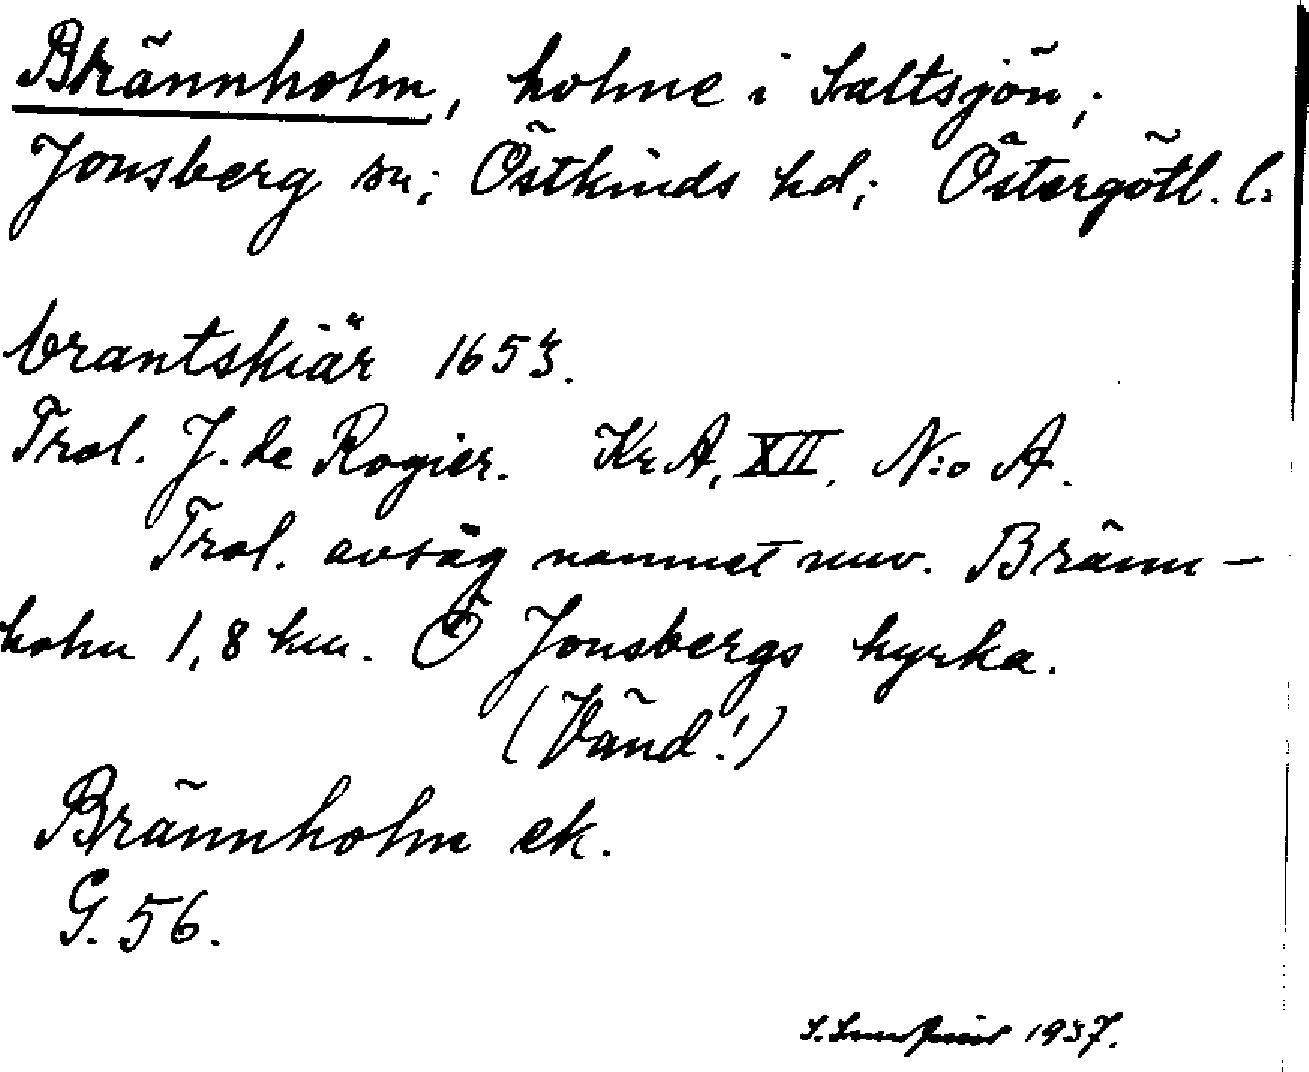 Brännholm, holme i Saltsjön;
Jonsberg sn; Östkinds hd; Östergötl. l.
brantskiär 1653.
Trol. J. de Rogier. KrA, XII, N:o A.
Trol. avsåg namnet nuv. Bränn-
holm 1,8 km. Ö Jonsbergs kyrka.
(Vänd!)
Brännholm ek.
G. 56.
1937.